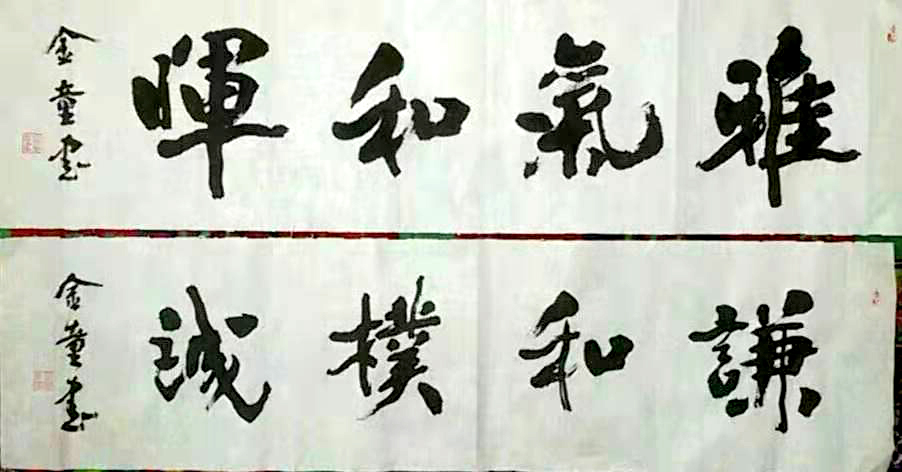 雅氣和暉
金童书
謙和樸誠
金童书